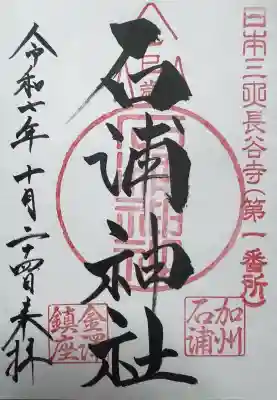 日本三大長谷寺(第一番所)
加州
石浦
石浦神社
金澤
鎮座
令和七年十月二十四日来拝